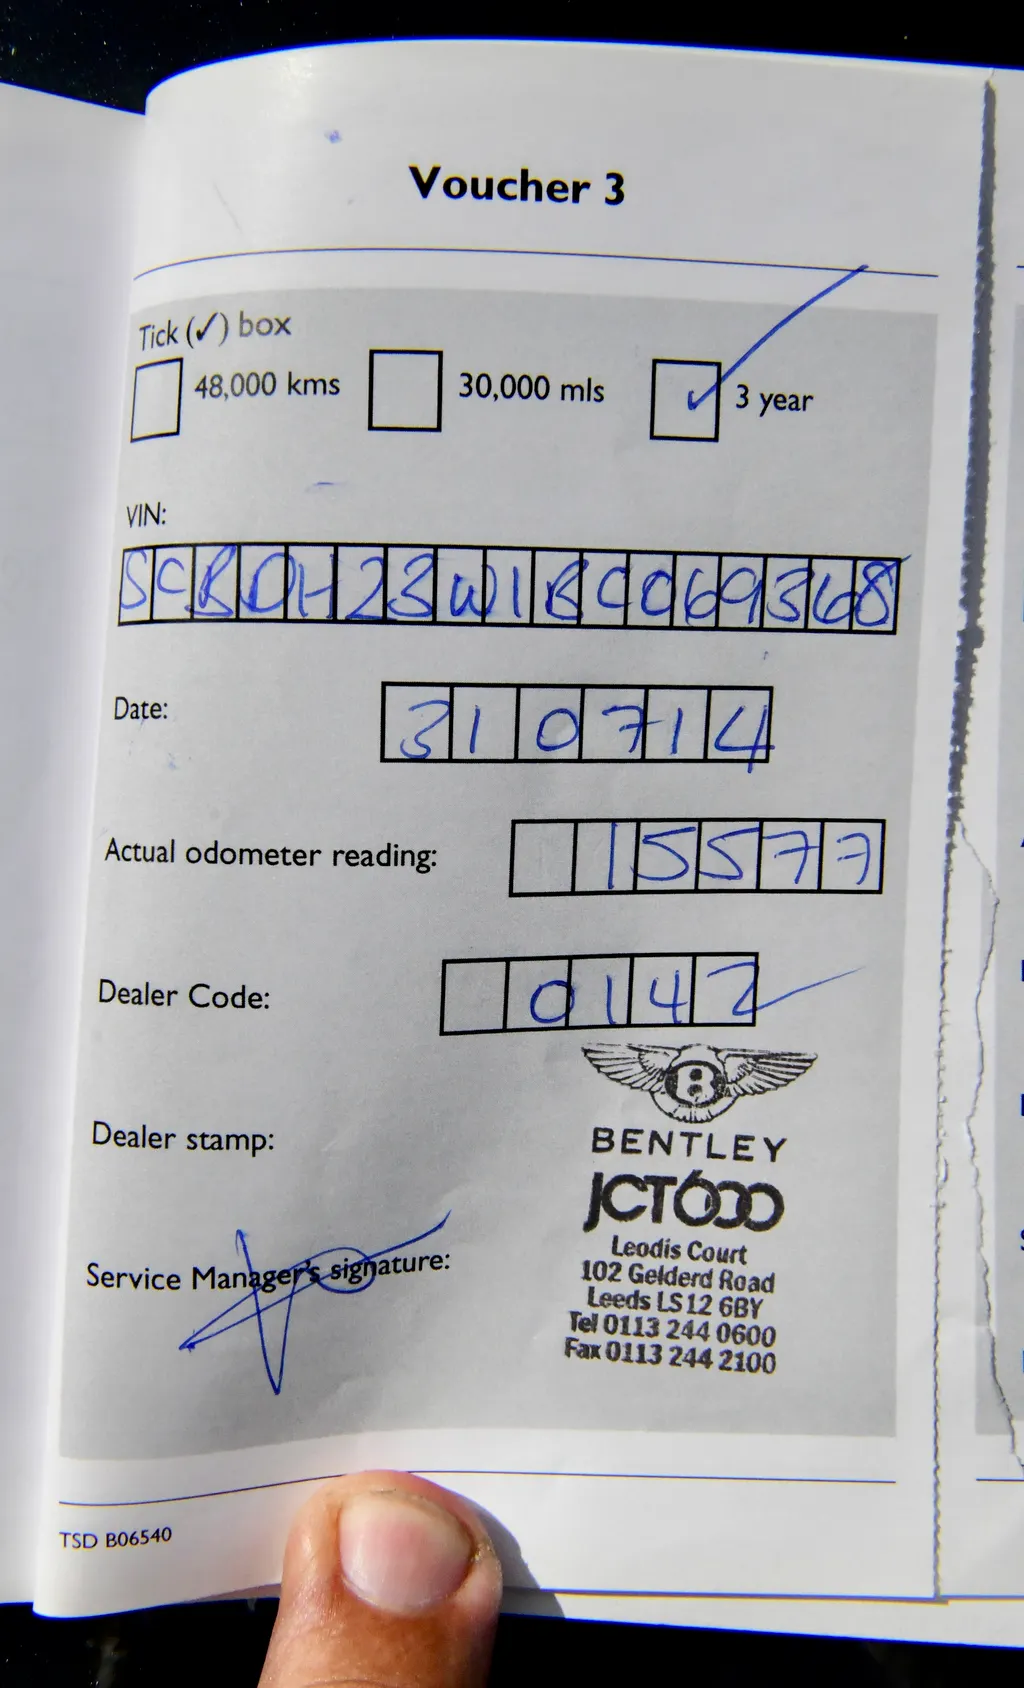 Voucher 3
Tick (✓) box
48,000 kms 30,000 mls ✓ 3 year
VIN:
SCBDH23W1BC069368
Date: 310714
Actual odometer reading: 15577
Dealer Code: 0142
B
Dealer stamp: BENTLEY
JCT600
Leodis Court
102 Gelderd Road
Leeds LS12 6BY
Tel 0113 244 0600
Fax 0113 244 2100
Service Manager's signature:
TSD B06540